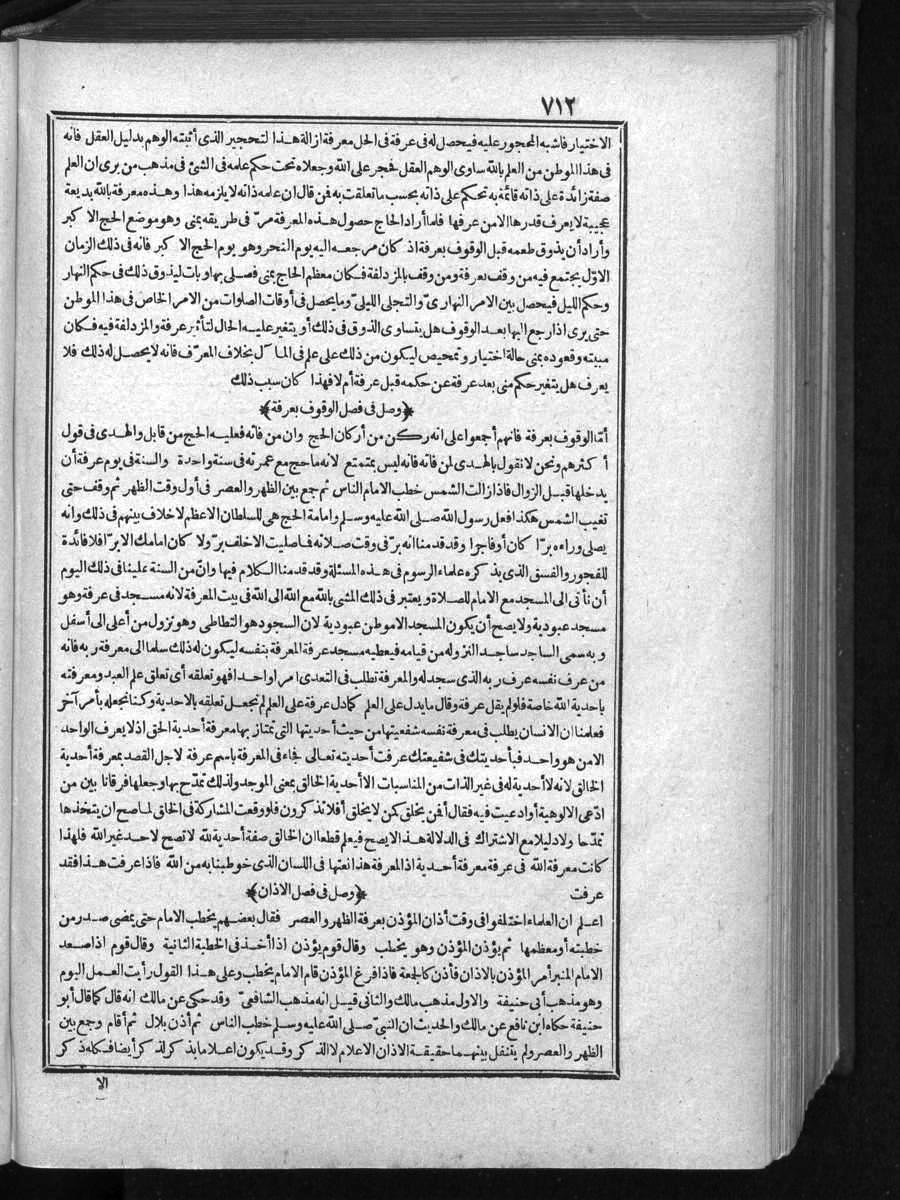 ٧١٢
الاختيار فاشبه المحجور عليه فيحصل له فى عرفة فى الحل معرفة ازالة هذا التحجير الذى أثبته الوهم بدليل العقل فانه
فى هذا الموطن من العلم بالله ساوى الوهم العقل فحجر على الله وجعلاه تحت حكم علمه فى الشئ فى مذهب من يرى ان العلم
صفة زائدة على ذاته قائمة به تحكم على ذاته بحسب ما تعلقت به فمن قال ان علمه ذاته لا يلزمه هذا وهذه معرفة بالله بديعة
عجيبة لا يعرف قدرها الا من عرفها فلما أراد الحاج حصول هذه المعرفة مرّ فى طريقه بمنى وهو موضع الحج الاكبر
وأراد أن يذوق طعمه قبل الوقوف بعرفة اذ كان مرجعه اليه يوم النحر وهو يوم الحج الاكبر فانه فى ذلك الزمان
الاوّل يجتمع فيه من وقف بعرفة ومن وقف بالمزدلفة فكان معظم الحاج بمنى فصلى بها وبات ليذوق ذلك فى حكم النهار
وحكم الليل فيحصل بين الامر النهارىّ والتجلى الليلىّ وما يحصل فى أوقات الصلوات من الامر الخاص فى هذا الموطن
حتى يرى اذا رجع اليها بعد الوقوف هل يتساوى الذوق فى ذلك أو يتغير عليه الحال لتأثير عرفة والمزدلفة فيه فكان
مبيته وقعوده بمنى حالة اختبار وتمحيص ليكون من ذلك على علم فى المآل بخلاف المعرّف فانه لا يحصل له ذلك فلا
يعرف هل يتغير حكم منى بعد عرفة عن حكمه قبل عرفة أم لا فهذا كان سبب ذلك
﴿وصل فى فصل الوقوف بعرفة﴾
أمّا الوقوف بعرفة فانهم أجمعوا على انه ركن من أركان الحج وان من فاته فعليه الحج من قابل والهدى فى قول
أكثرهم ونحن لا نقول بالهدى لمن فاته فانه ليس بمتمتع لانه ما حج مع عمرته فى سنة واحدة والسنة فى يوم عرفة أن
يدخلها قبل الزوال فاذا زالت الشمس خطب الامام الناس ثم جمع بين الظهر والعصر فى أول وقت الظهر ثم وقف حتى
تغيب الشمس هكذا فعل رسول الله صلى الله عليه وسلم وامامة الحج هى للسلطان الاعظم لا خلاف بينهم فى ذلك وانه
يصلى وراءه برّا كان أو فاجرا وقد قدمنا انه برّ فى وقت صلاته فما صليت الا خلف برّ ولا كان امامك الا برّ افلا فائدة
للفجور والفسق الذى يذكره علماء الرسوم فى هذه المسئلة وقد قدمنا الكلام فيها وانّ من السنة علينا فى ذلك اليوم
أن نأتى الى المسجد مع الامام للصلاة ويعتبر فى ذلك المشى بالله مع الله الى الله فى بيت المعرفة لانه مسجد فى عرفة وهو
مسجد عبودية ولا يصح أن يكون المسجد الا موطن عبودية لان السجود هو التطاطى وهو نزول من أعلى الى أسفل
وبه سمى الساجد ساجد النزوله من قيامه فيعطيه مسجد عرفة المعرفة بنفسه ليكون له ذلك سلما الى معرفة ربه فانه
من عرف نفسه عرف ربه الذى سجد له والمعرفة تطلب فى التعدى امرا واحدا فهو تعلقه أى تعلق علم العبد ومعرفته
باحدية الله خاصة فلو لم يقل عرفة وقال ما يدل على العلم كما دل عرفة على العلم لم نجعل تعلقه بالاحدية وكنا نجعله بأمر آخر
فعلمنا ان الانسان يطلب فى معرفة نفسه شفعيتها من حيث أحديتها التى تمتاز بها معرفة أحدية الحق اذ لا يعرف الواحد
الا من هو واحد فبأحديتك فى شفيعتك عرفت أحديته تعالى فجاء فى المعرفة باسم عرفة لاجل القصد بمعرفة أحدية
الخالق لانه لا أحدية له فى غير الذات من المناسبات الا أحدية الخالق بمعنى الموجد ولذلك تمدّح بها وجعلها فرقانا بين من
ادّعى الالوهية أو ادعيت فيه فقال أفمن يخلق كمن لا يخلق أفلا تذكرون فلو وقعت المشاركة فى الخلق لما صح ان يتخذها
تمدّحا ولا دليلا مع الاشتراك فى الدلالة هذا لا يصح فيعلم قطعا ان الخالق صفة أحدية لله لا تصح لاحد غير الله فلهذا
كانت معرفة الله فى عرفة معرفة أحدية اذ المعرفة هذا نعتها فى اللسان الذى خوطبنا به من الله فاذا عرفت هذا فقد
عرفت ﴿وصل فى فصل الاذان﴾
اعلم ان العلماء اختلفوا فى وقت أذان المؤذن بعرفة الظهر والعصر فقال بعضهم يخطب الامام حتى يمضى صدر من
خطبته أو معظمها ثم يؤذن المؤذن وهو يخطب وقال قوم يؤذن اذا أخذ فى الخطبة الثانية وقال قوم اذا صعد
الامام المنبر أمر المؤذن بالاذان فأذن كالجمعة فاذا فرغ المؤذن قام الامام يخطب وعلى هذا القول رأيت العمل اليوم
وهو مذهب أبى حنيفة والاول مذهب مالك والثانى قيل انه مذهب الشافعىّ وقد حكى عن مالك انه قال كما قال أبو
حنيفة حكاه ابن نافع عن مالك والحديث ان النبىّ صلى الله عليه وسلم خطب الناس ثم أذن بلال ثم أقام وجمع بين
الظهر والعصر ولم يتنفل بينهما حقيقة الاذان الاعلام لا الذكر وقد يكون اعلاما بذكر لذكر أيضا فكله ذكر
الا